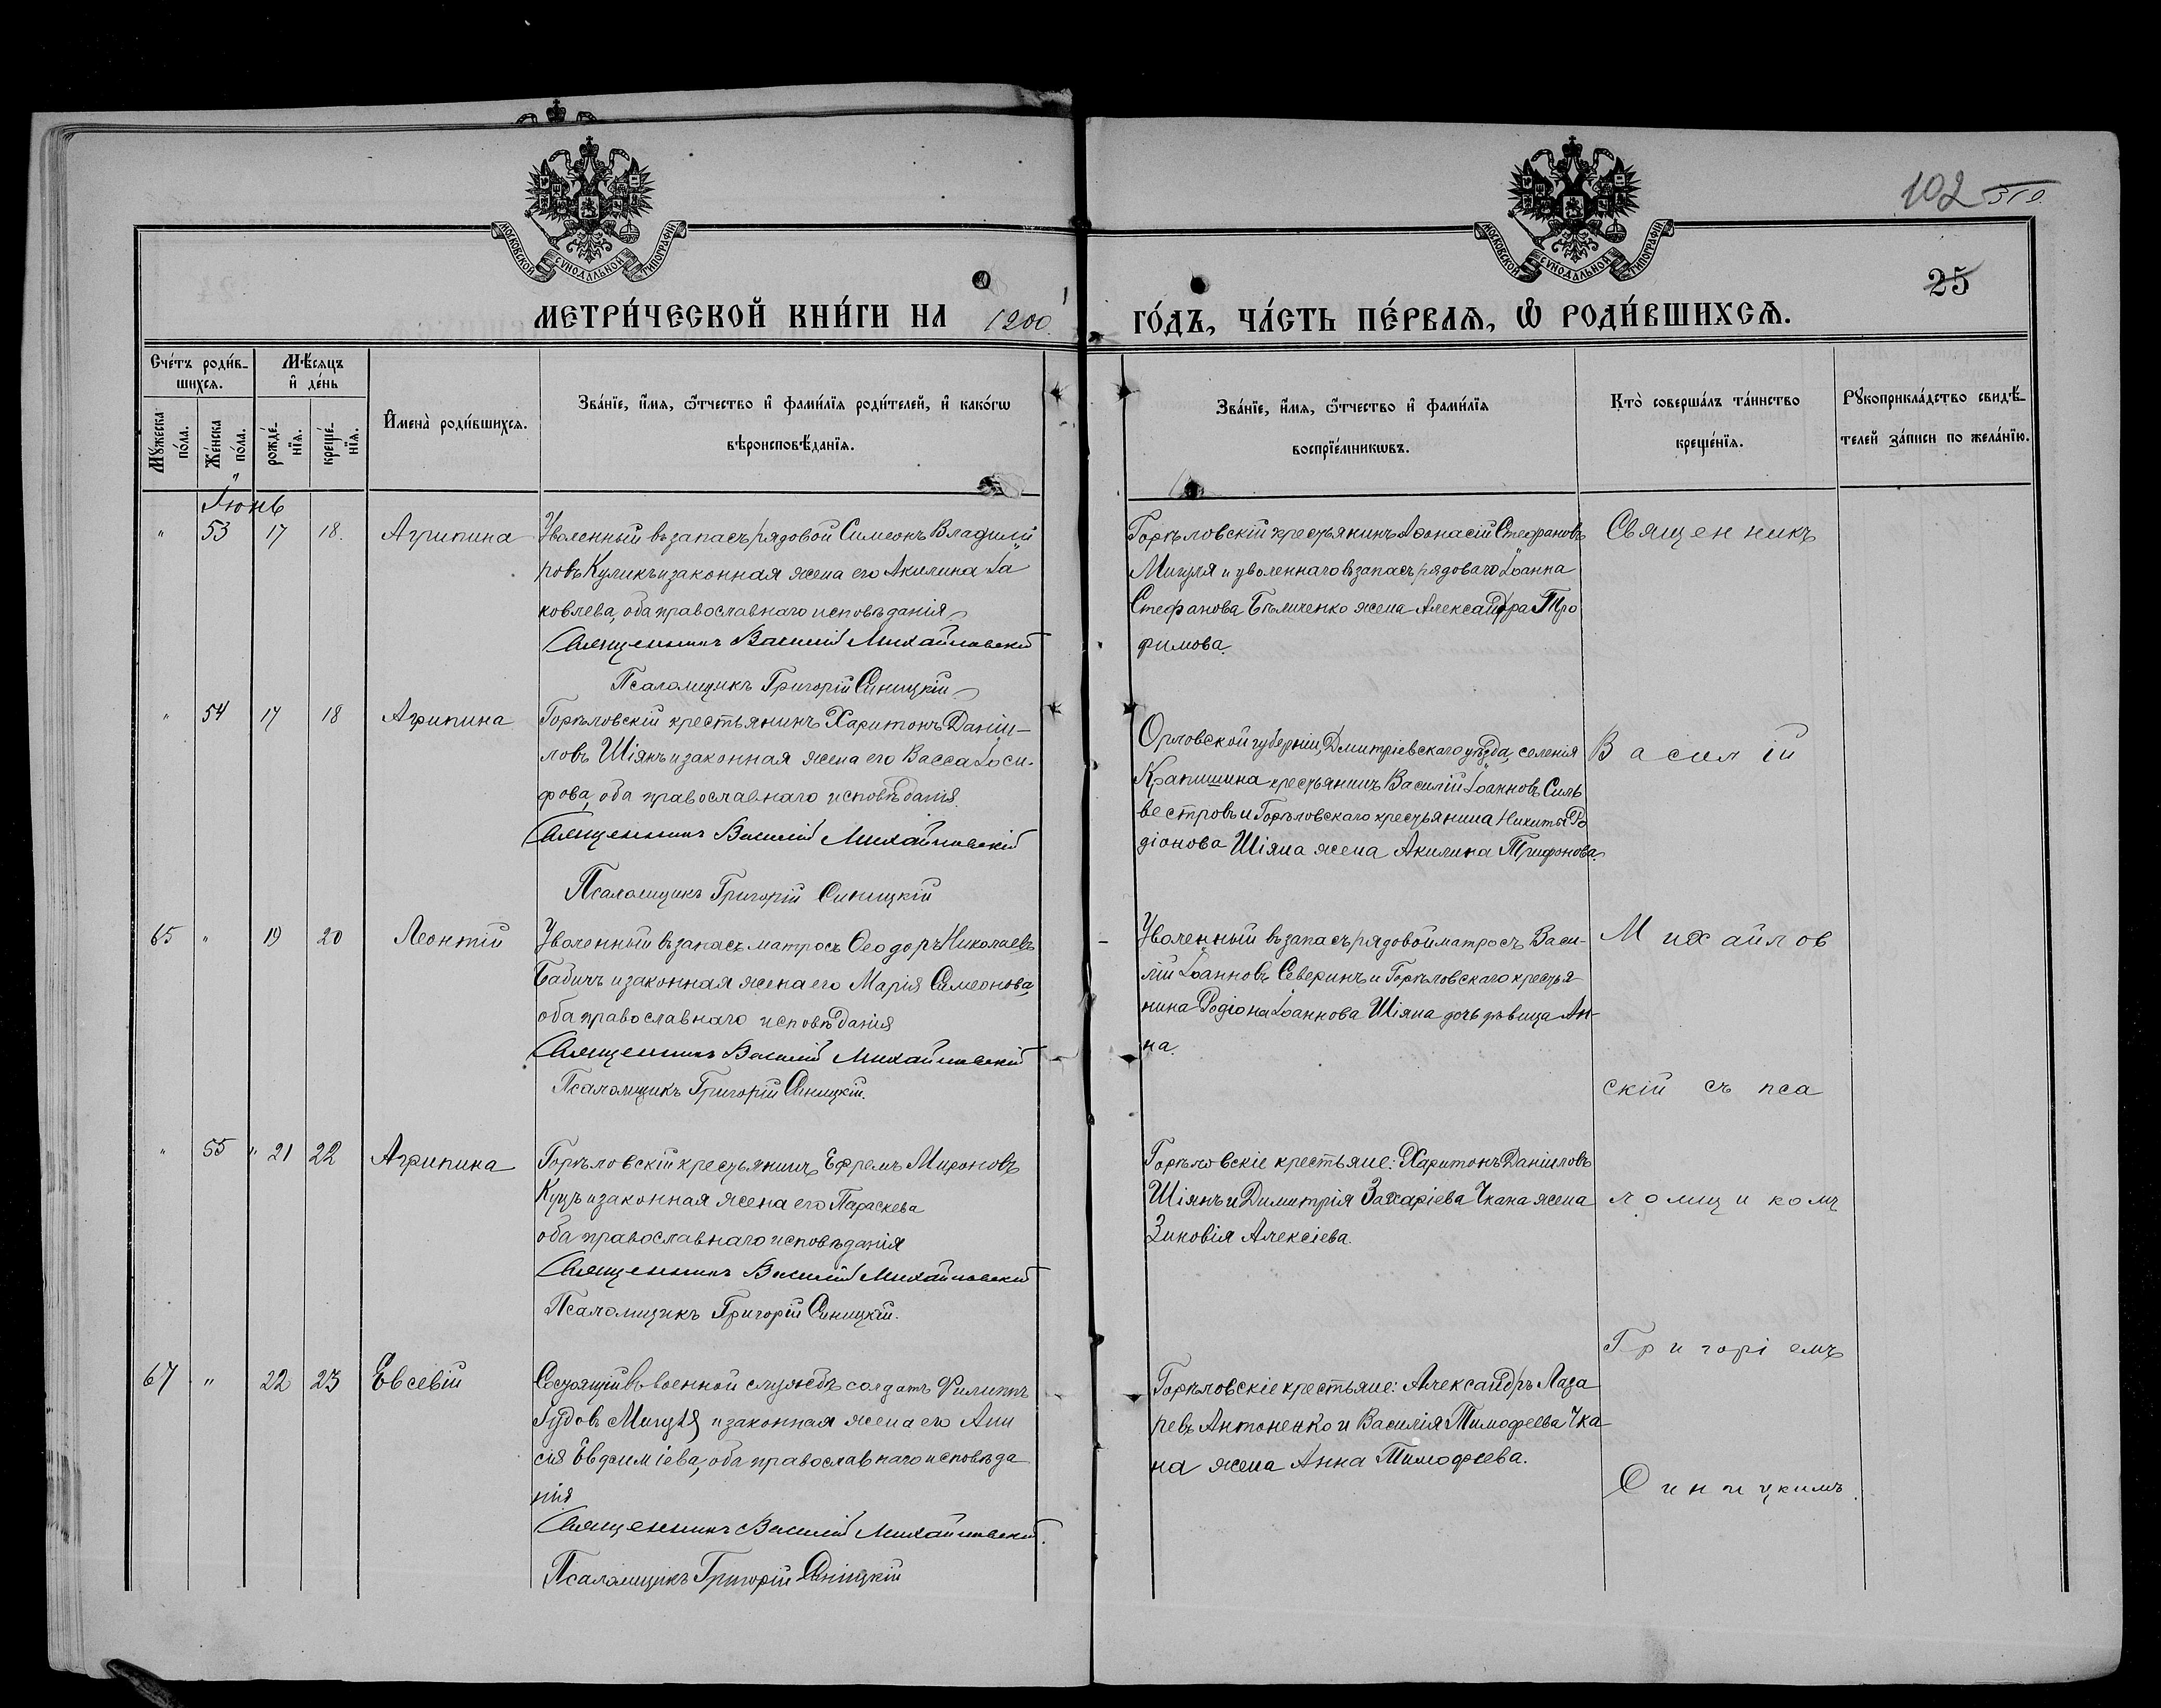 102 310
25
МОСКОВСКОЙ СѴНОДАЛЬНОЙ ТИПОГРАФІИ
МОСКОВСКОЙ СѴНОДАЛЬНОЙ ТИПОГРАФІИ
МЕТРИ́ЧЕСКОЙ КНИ́ГИ НА 1900 ГО́ДЪ, ЧА́СТЬ ПЕ́РВАѦ, Ѡ҆ РОДИ́ВШИХСѦ.
Сче́тъ роди́в-
шихсѧ.
Мꙋ́жеска по́ла.
Же́нска по́ла.
Мѣ́сѧцъ
и҆ де́нь
рожде́-
нїѧ.
креще́-
нїѧ.
И҆мена̀ роди́вшихсѧ.
Зва́нїе, и҆́мѧ, ѻ҆́тчество и҆ фами́лїѧ роди́телей, и҆ како́гѡ
вѣроисповѣ́данїѧ.
Зва́нїе, и҆́мѧ, ѻ҆́тчество и҆ фами́лїѧ
воспрїе́мникѡвъ.
Кто̀ соверша́лъ та́инство
креще́нїѧ.
Рꙋкоприкла́дство свидѣ́-
телей за́писи по жела́нїю.
Іюнь
" 53 17 18. Агрипина
Уволенный въ запасъ рядовой Симеонъ Владими
ровъ Куликъ и законная жена его Акилина Іа
ковлева, оба православнаго исповѣданія
Священникъ Василій Михайловскій
Псаломщикъ Григорій Синицкій
Горѣловскій крестьянинъ Аѳанасій Стефановъ
Мигуля и уволеннаго въ запасъ рядоваго Іоанна
Стефанова Бѣличенко жена Александра Тро
фимова.
" 54 17 18 Агрипина
Горѣловскій крестьянинъ Харитонъ Даніи-
ловъ Шіянъ и законная жена его Васса Іоси-
фова, оба православнаго исповѣданія.
Священникъ Василій Михайловскій
Псаломщикъ Григорій Синицкій
Орловской губерніи, Дмитріевскаго уѣзда, селенія
Крапишина крестьянинъ Василій Іоанновъ Силь
вестровъ и Горѣловскаго крестьянина Никиты Ро
діонова Шіяна жена Акилина Трифонова
65 " 19 20 Леонтій
Уволенный въ запасъ матросъ Ѳеодоръ Николаевъ
Бабичъ и законная жена его Марія Симеонова,
оба православнаго исповѣданія
Священникъ Василій Михайловскій
Псаломщикъ Григорій Синицкій.
Уволенный въ запасъ рядовой матросъ Васи-
лій Іоанновъ Северинъ и Горѣловскаго крестья
нина Родіона Іоаннова Шіяна дочь дѣвица Ан-
на.
" 55 " 21 22 Агрипина
Горѣловскій крестьянинъ Ефремъ Мироновъ
Куцъ и законная жена его Параскева
оба православнаго исповѣданія
Священникъ Василій Михайловскій
Псаломщикъ Григорій Синицкій.
Горѣловскіе крестьяне: Харитонъ Даніиловъ
Шіянъ и Димитрія Захаріева Чкана жена
Зиновія Алексіева.
67 " 22 23 Евсевій
Состоящій въ военной службѣ солдатъ Филиппъ
Іудовъ Мигуля и законная жена его Ани
сія Евфиміева, оба православнаго исповѣда
нія
Священникъ Василій Михайловскій.
Псаломщикъ Григорій Синицкій
Горѣловскіе крестьяне: Александръ Лаза
ревъ Антоненко и Василія Тимофеева Чка
на жена Анна Тимофеева.
Священникъ
Василій
Михайлов
скій съ пса
ломщикомъ
Григоріемъ
Синицкимъ.